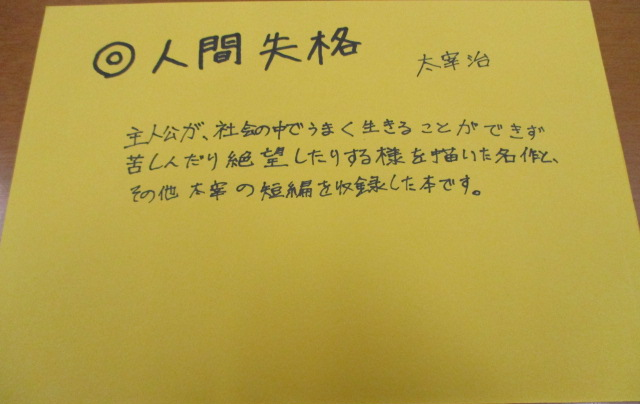 ◎人間失格 太宰治
主人公が、社会の中でうまく生きることができず
苦しんだり絶望したりする様を描いた名作と、
その他太宰の短編を収録した本です。